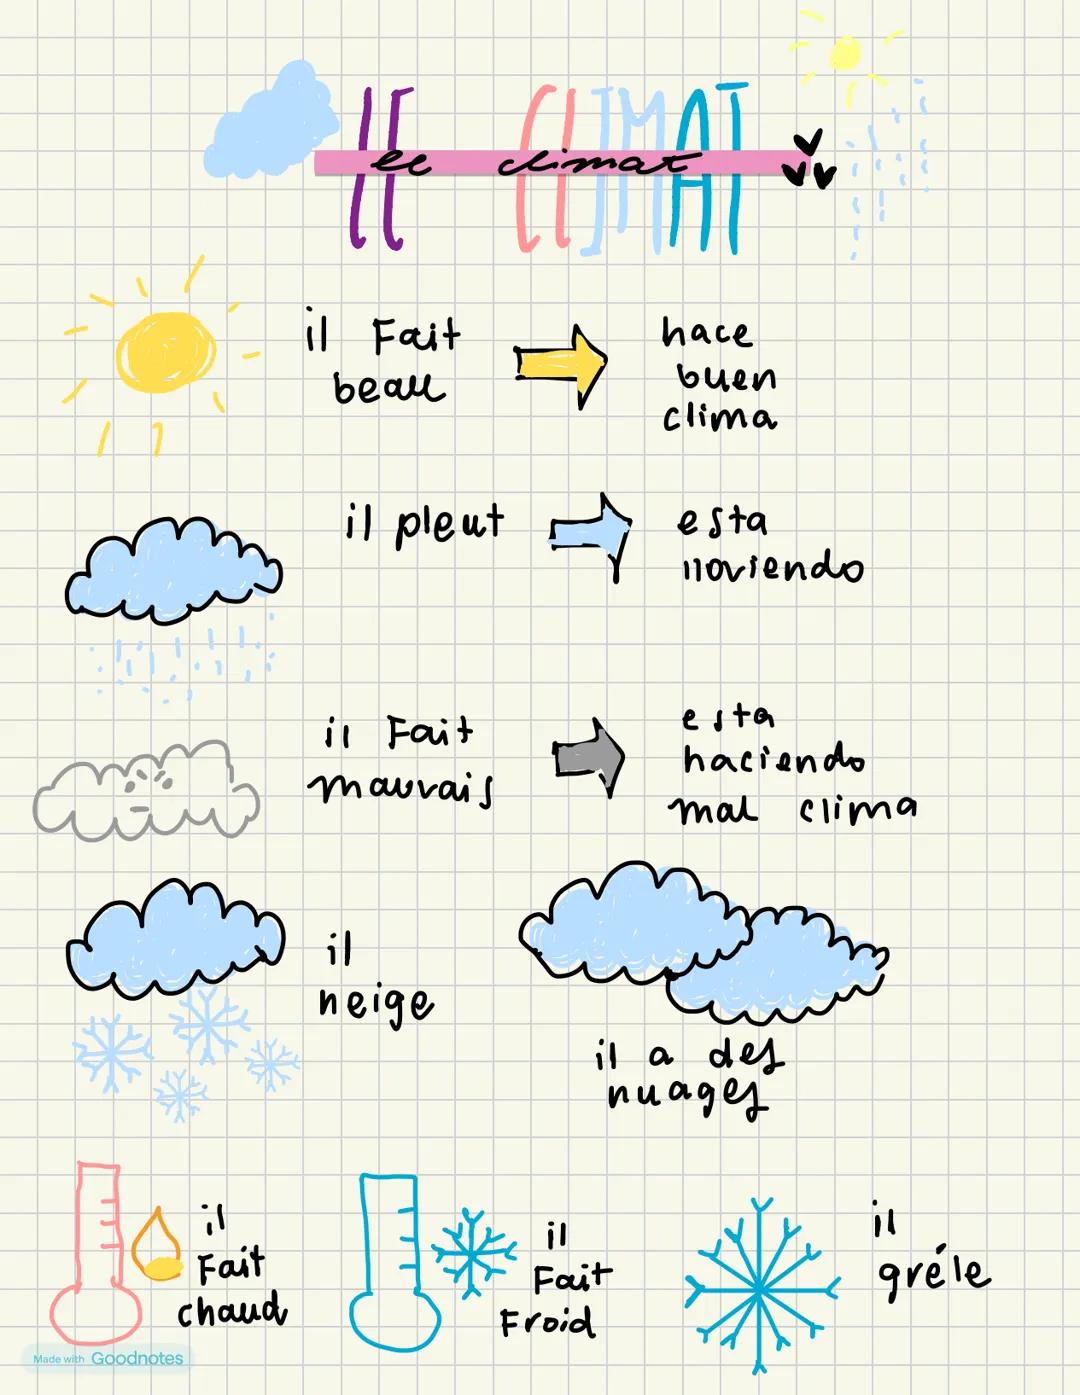 le CLIMAT
le climat
il Fait
beau
hace
buen
clima
il pleut
esta
lloviendo
il Fait
mauvais
esta
haciendo
mal clima
il
neige
il a des
nuages
il
Fait
chaud
il
Fait
Froid
il
gréle
Made with Goodnotes